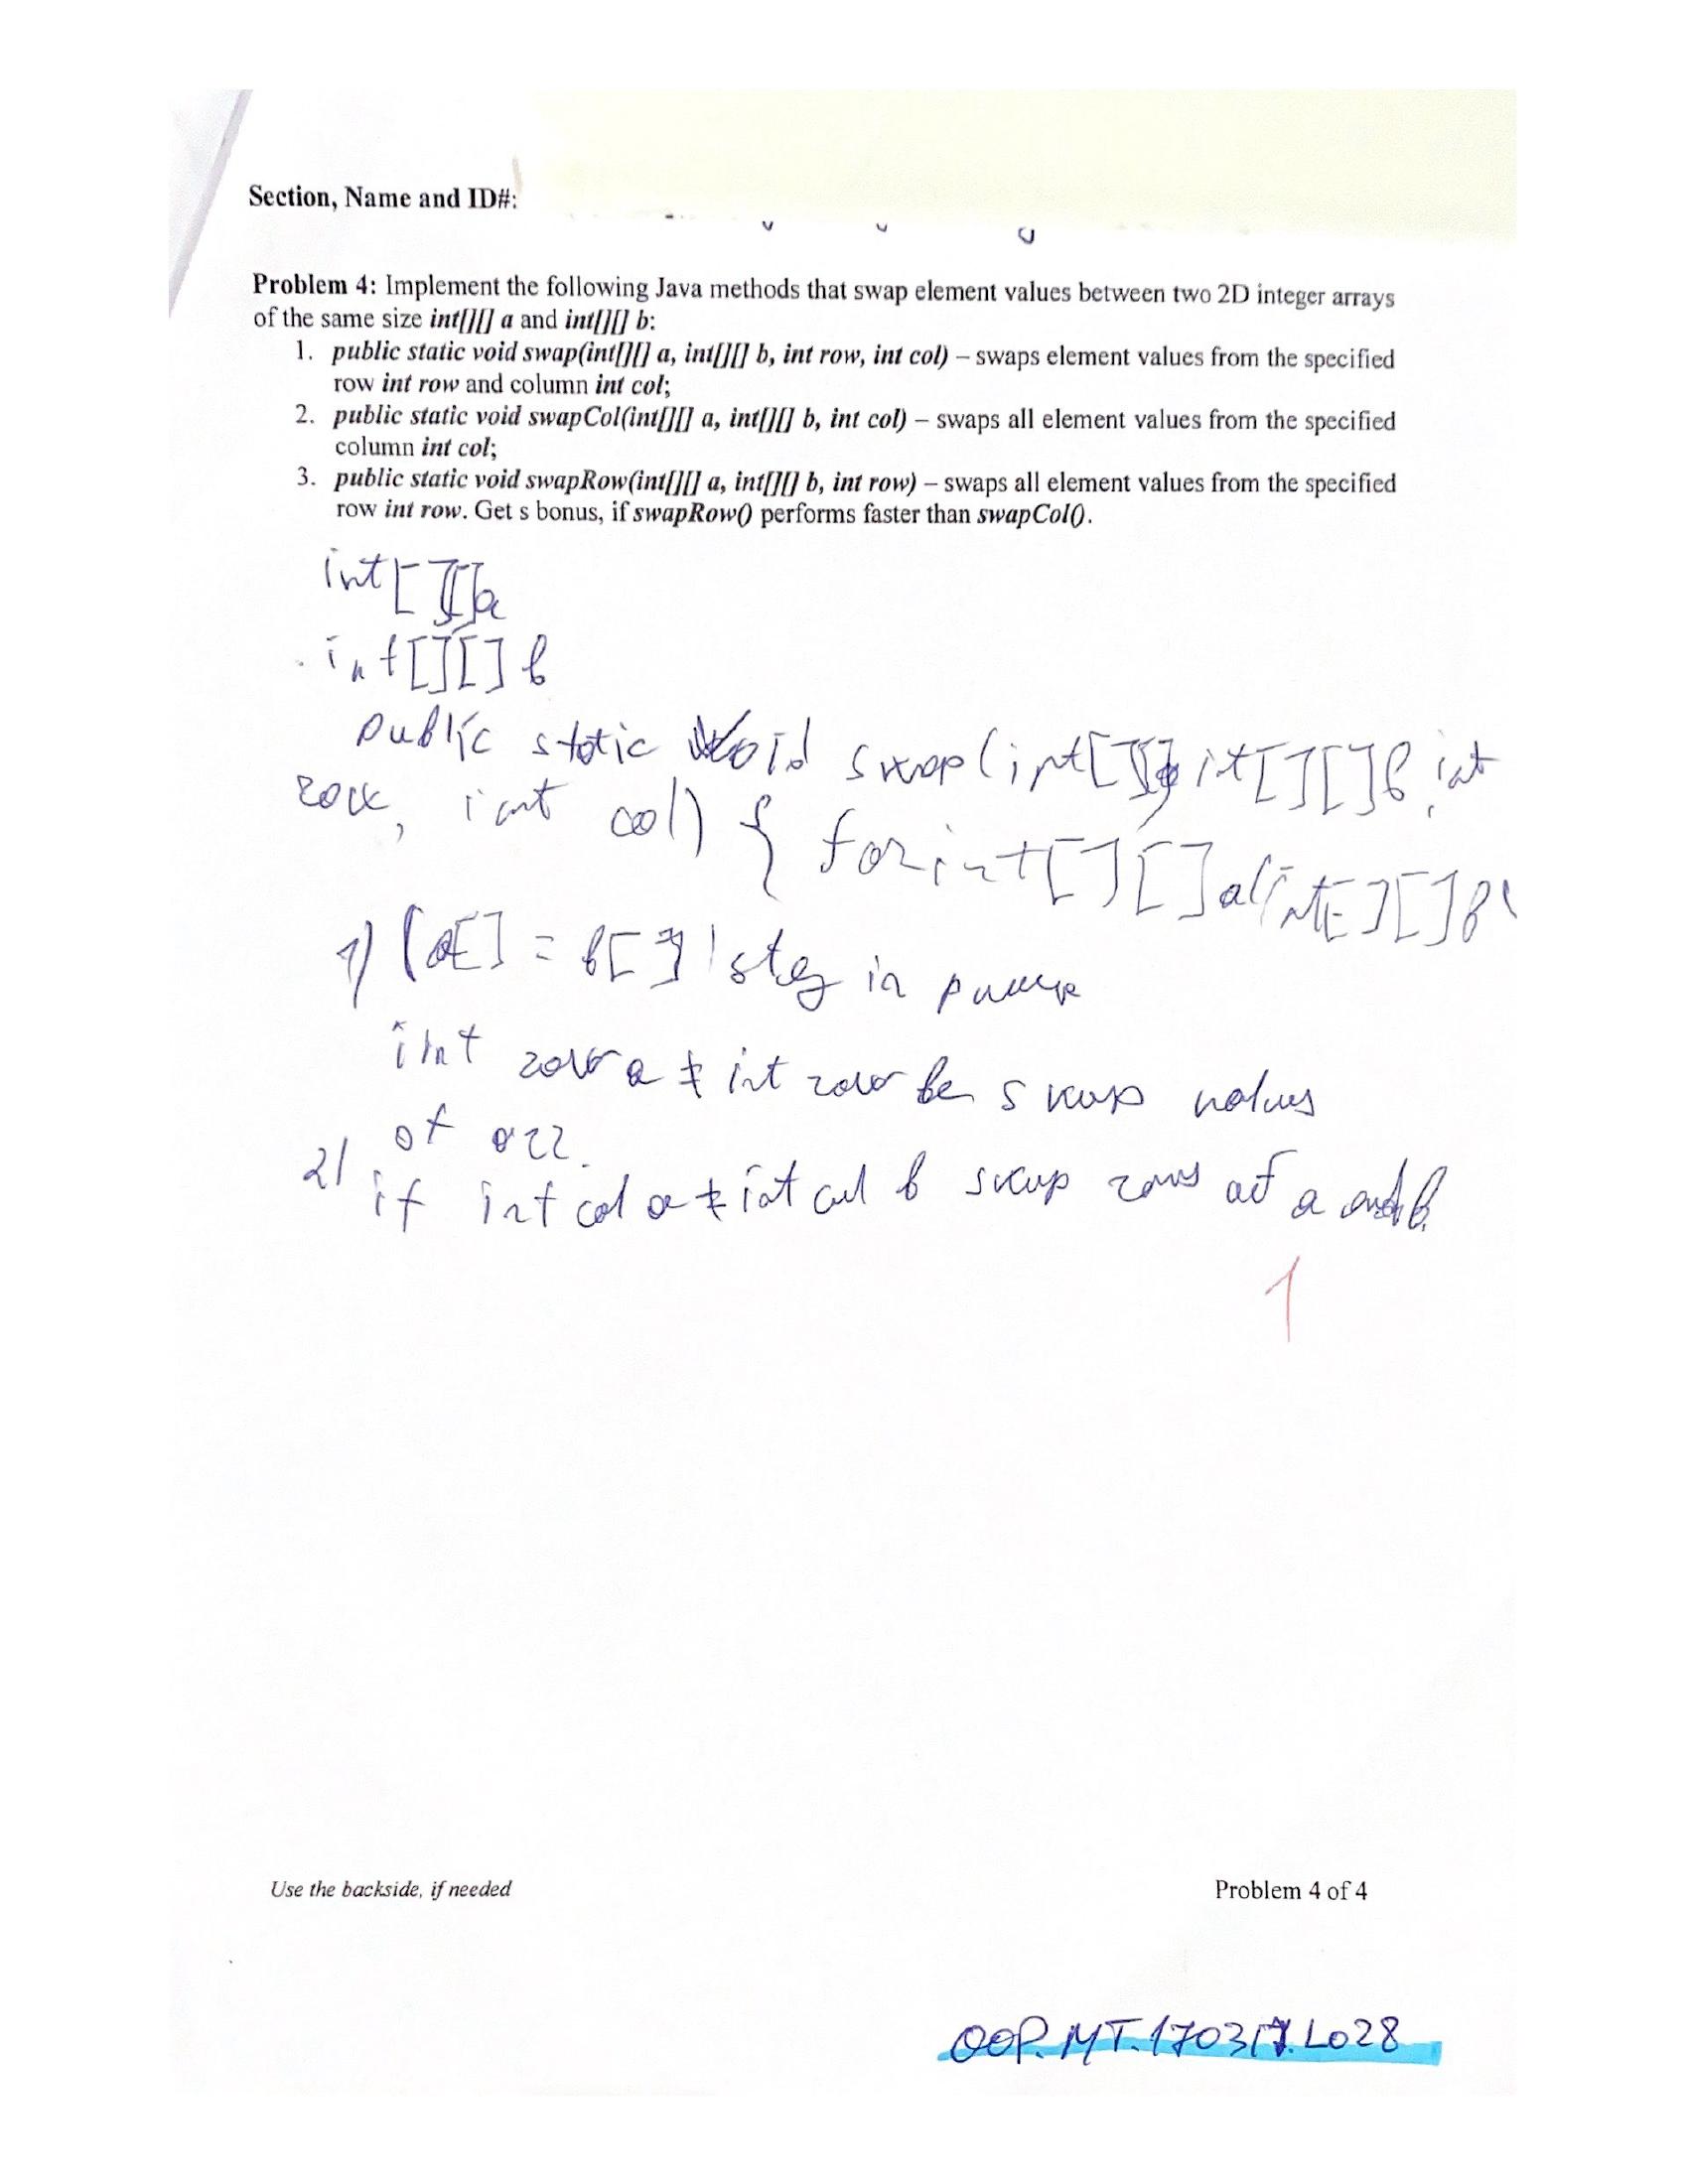 Section, Name and ID#:
Problem 4: Implement the following Java methods that swap element values between two 2D integer arrays
of the same size int[][] a and int[][] b:
1. public static void swap(int[][] a, int[][] b, int row, int col) – swaps element values from the specified
row int row and column int col;
2. public static void swapCol(int[][] a, int[][] b, int col) – swaps all element values from the specified
column int col;
3. public static void swapRow(int[][] a, int[][] b, int row) – swaps all element values from the specified
row int row. Get s bonus, if swapRow() performs faster than swapCol().
int[][]a
int[][] b
public static void swap(int[][] it[][]b, int
row, int col) { for int[][]a(int[][]b(
1) (a[] = b[] in
int row a ≠ int row b swap values
of arr.
2) if int col a ≠ int col b swap rows of a and b.
1
Use the backside, if needed
Problem 4 of 4
OOP.MT.170317.L028